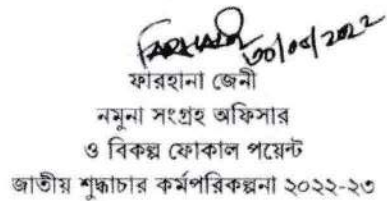 ৩০/০৫/২০২২
ফারহানা জেনী
নমুনা সংগ্রহ অফিসার
ও বিকল্প ফোকাল পয়েন্ট
জাতীয় শুদ্ধাচার কর্মপরিকল্পনা ২০২২-২৩